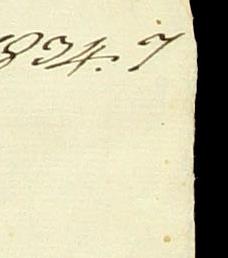 1834. 7